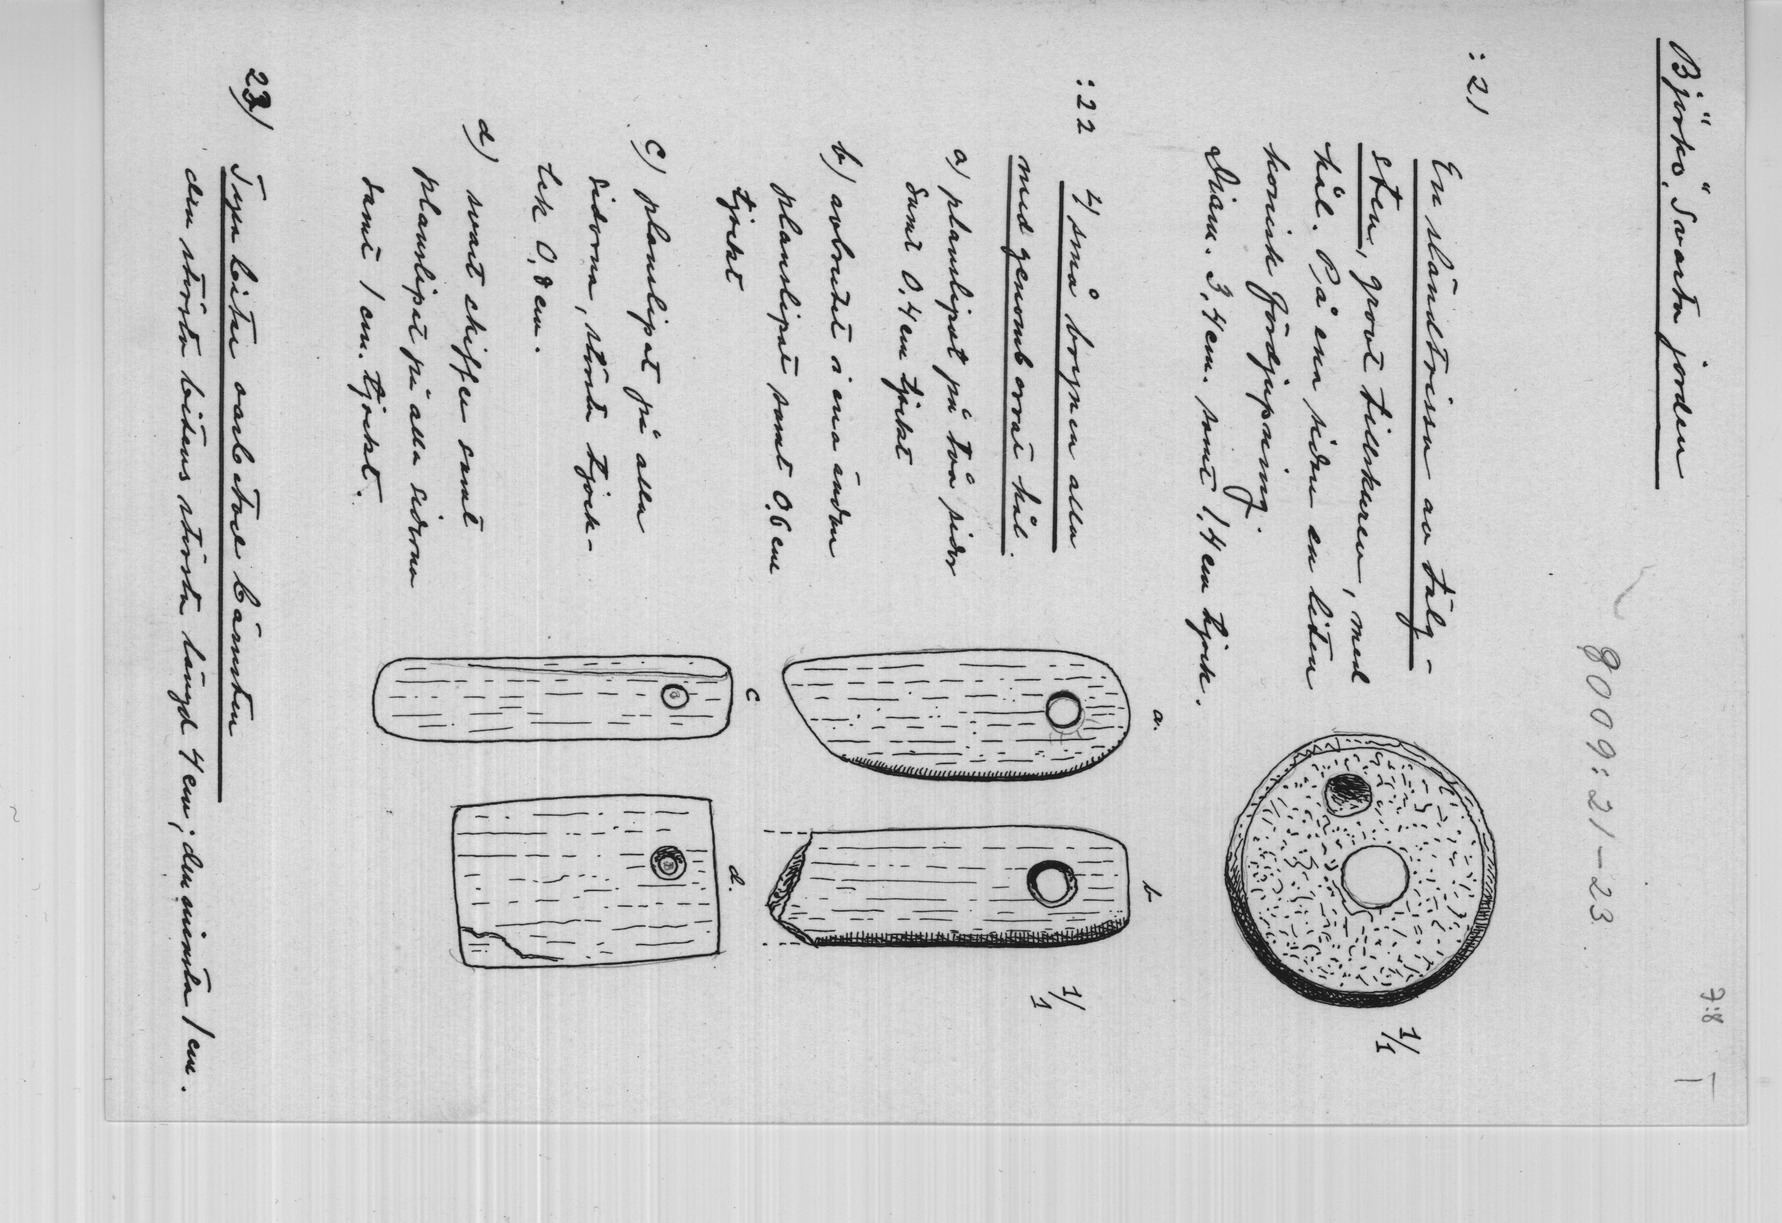 Björkö, "Svarta jorden"
7:8
8009:21-23.
:21
En sländtrissa av tälg-
sten, grovt tillskuren, med
hål. På ena sidan en liten
konisk fördjupning.
Diam. 3,4 cm. samt 1,4 cm tjock.
1/1
:22
4 små brynen alla
med genomborrat hål.
a) planslipat på två sidor
samt 0,4 cm tjockt
b) avbrutet i ena ändan
planslipat samt 0,6 cm
tjockt
c) planslipat på alla
sidorna, största tjock-
lek 0,8 cm.
d) svart skiffer samt
planslipat på alla sidorna
samt 1 cm. tjockt.
a.
b
c
d.
1/1
23)
bitar oarbetad bärnsten
den största bitens största längd 4 cm; den minsta 1 cm.